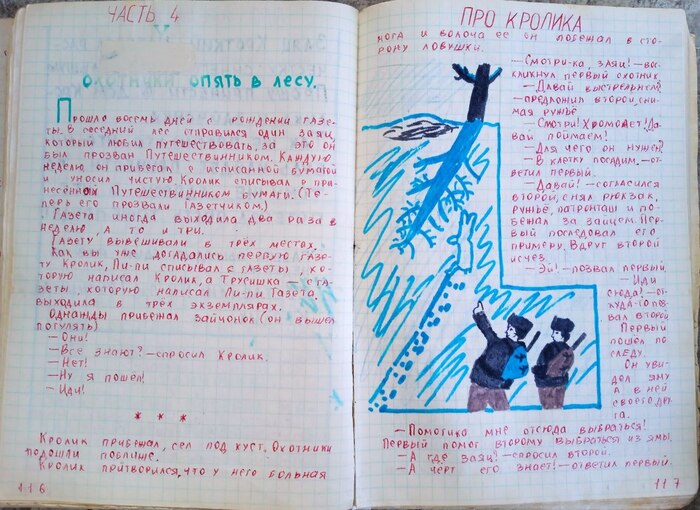 ЧАСТЬ 4
ОПЯТЬ В ЛЕСУ.
Прошло восемь дней с рождения газе-
ты. В соседний лес отправился один заяц,
который любил путешествовать, за это он
был прозван Путешественником. Каждую
неделю он прибегал с исписанной бумагой
и уносил чистую. Кролик списывал с при-
несённой Путешественником бумаги. (Те-
перь его прозвали Газетчиком.)
Газета иногда выходила два раза в
неделю, а то и три.
Газету вывешивали в трёх местах.
Как вы уже догадались первую газе-
ту Кролик, Пи-пи списывал с газеты, ко-
торую написал Кролик, а Трусишка – с га-
зеты, которую написал Пи-пи. Газета
выходила в трёх экземплярах.
Однажды прибежал зайчонок (он вышел
погулять)
– Они!
– Все знают? – спросил Кролик.
– Нет!
– Ну я пошёл!
– Иди!
* * *
Кролик прибежал, сел под куст. Охотники
подошли поближе.
Кролик притворился, что у него больная
116
ПРО КРОЛИКА
нога и волоча её он побежал в сто-
рону ловушки.
– Смотри-ка, заяц! – вос-
кликнул первый охотник
– Давай выстрелим? –
– предложил второй, сни-
мая ружьё
– Смотри! Хромает! Да-
вай поймаем!
– Для чего он нужен?
– В клетку посадим. – от-
ветил первый.
– Давай! – согласился
второй, снял рюкзак,
ружьё, патронташ и по-
бежал за зайцем. Пер-
вый последовал его
примеру. Вдруг второй
исчез.
– Эй! – позвал первый.
– Иди
сюда! – от-
куда-то поз-
вал второй
Первый
пошёл по
следу.
Он уви-
дел яму
а в ней
своего дру-
га.
– Помоги-ка мне отсюда выбраться!
Первый помог второму выбраться из ямы.
– А где заяц? – спросил второй.
– А чёрт его знает! – ответил первый.
117